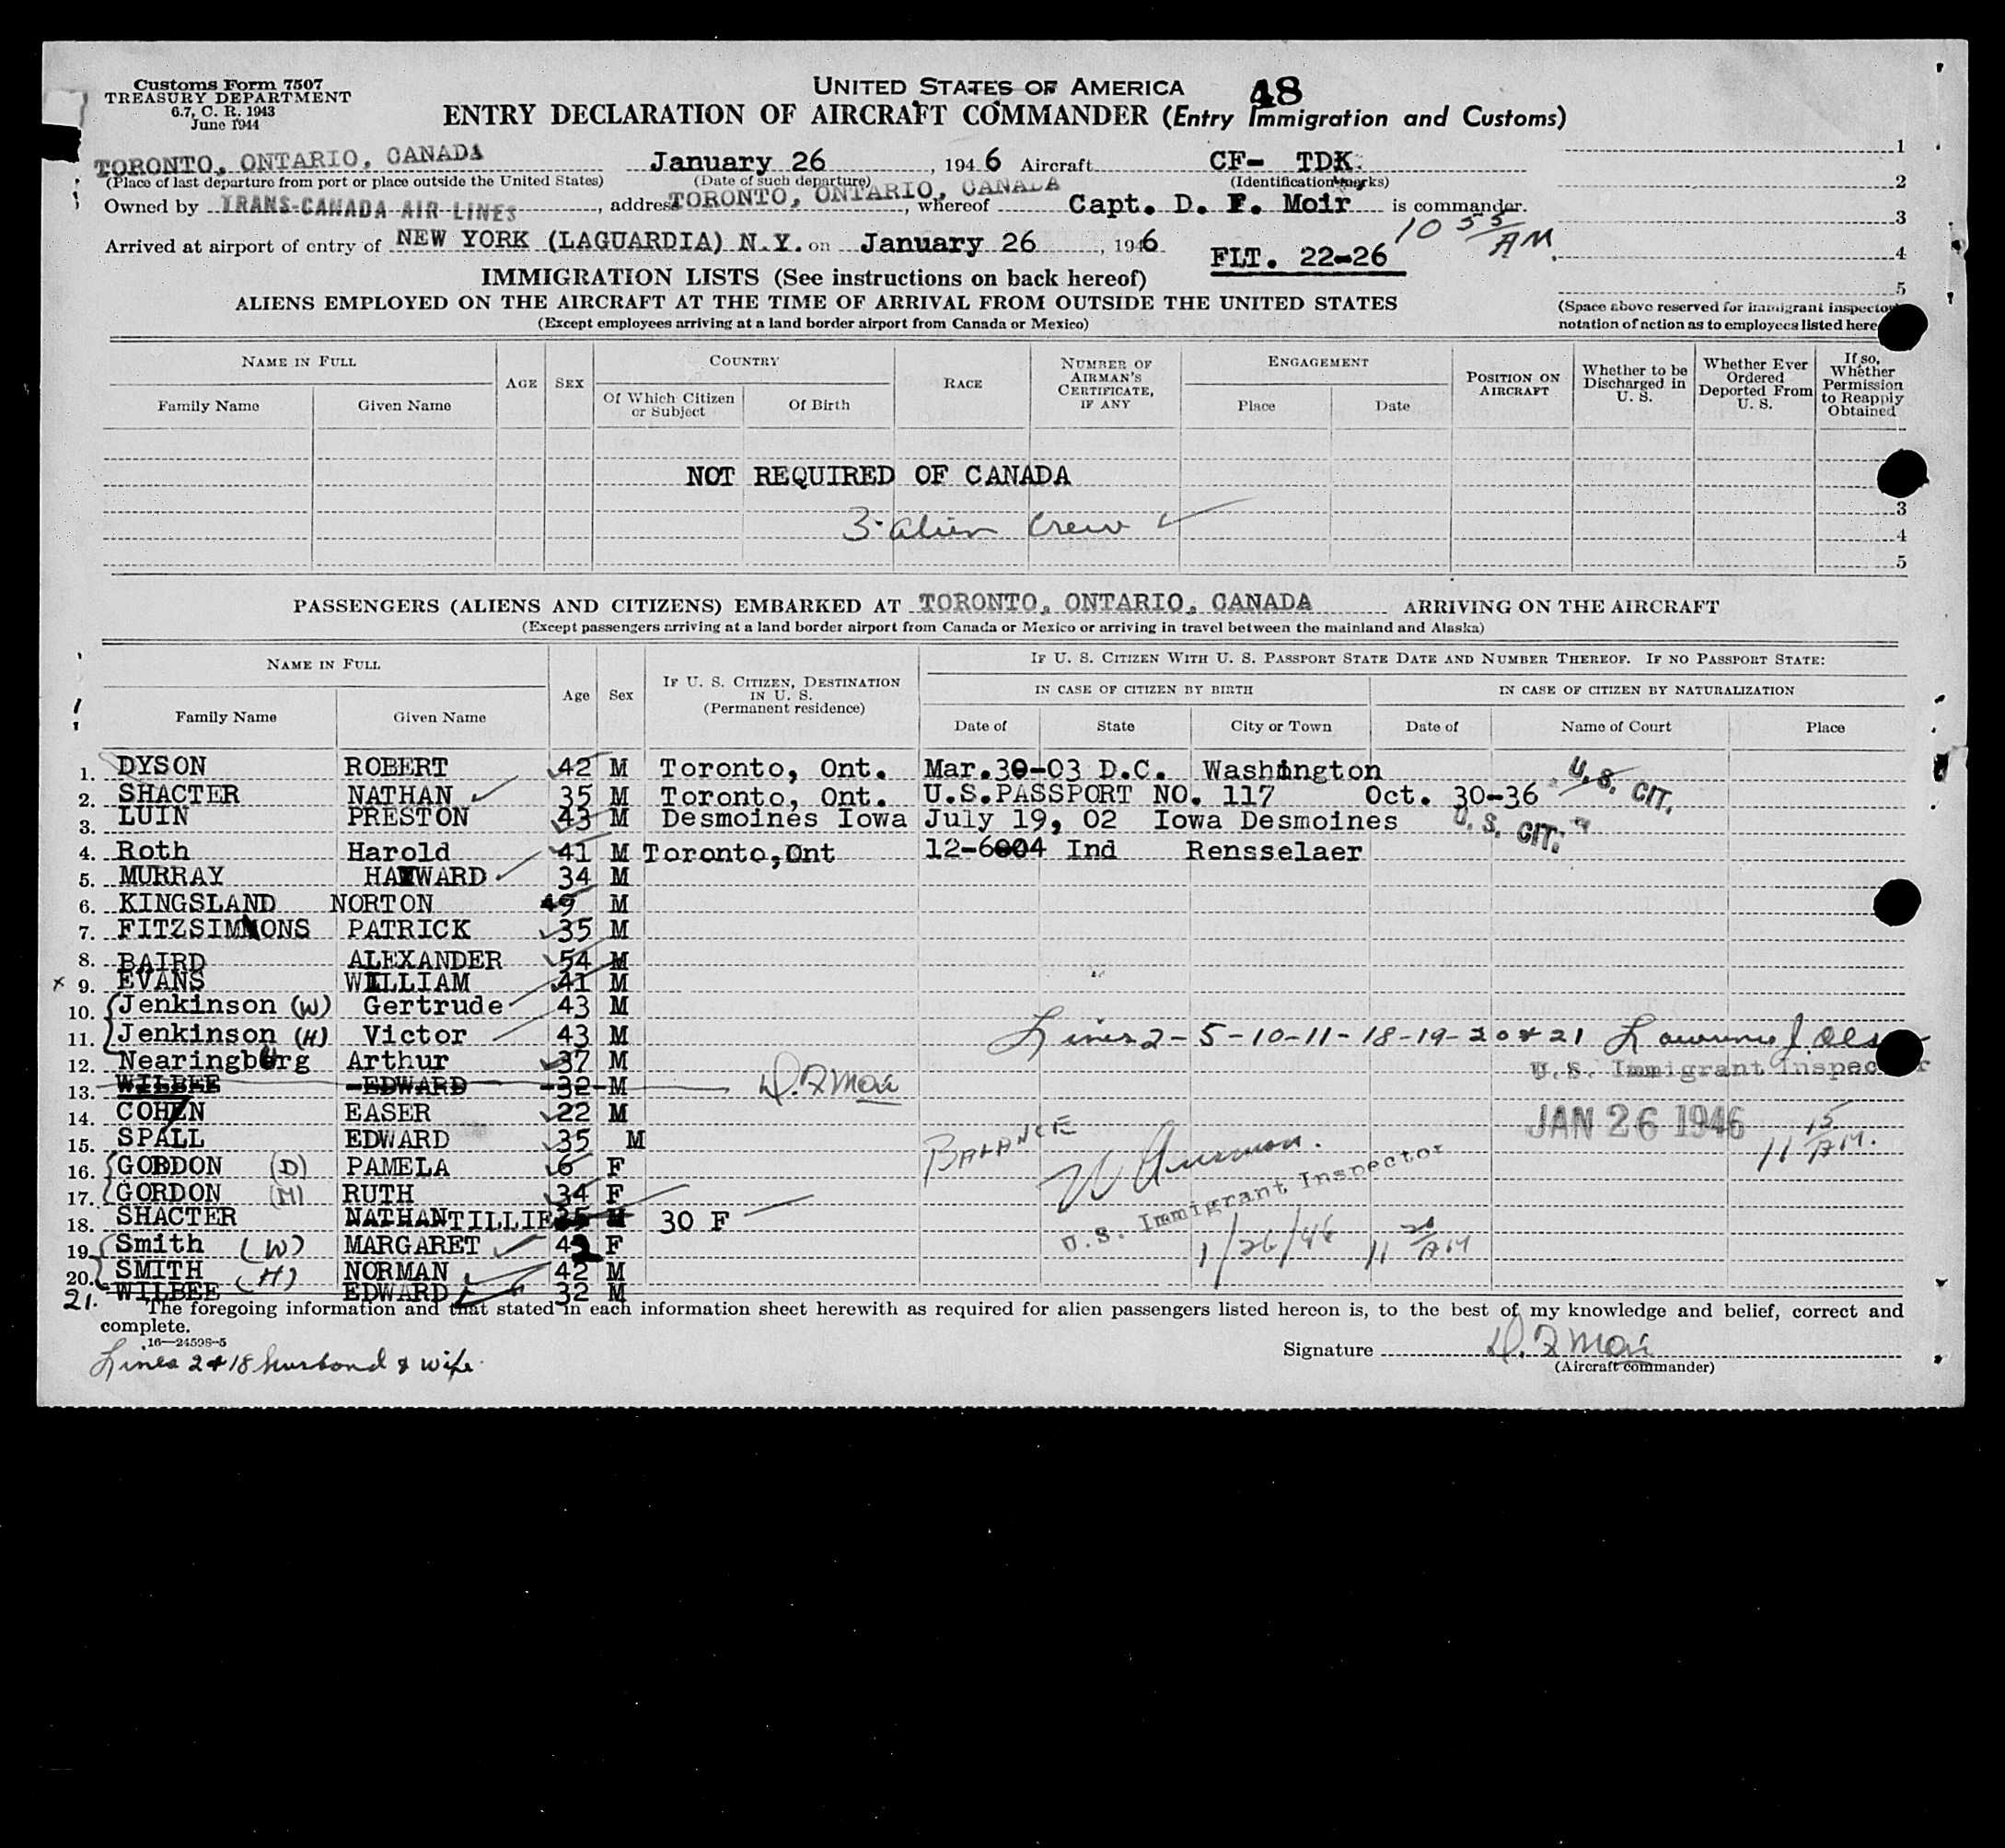 Customs Form 7507
TREASURY DEPARTMENT
6.7, C. R. 1943
June 1944
UNITED STATES OF AMERICA
48
ENTRY DECLARATION OF AIRCRAFT COMMANDER (Entry Immigration and Customs)
TORONTO, ONTARIO, CANADA January 26, 1946 Aircraft CF- TDK
(Place of last departure from port or place outside the United States) (Date of such departure) (Identification marks)
Owned by TRANS-CANADA AIR LINES, address TORONTO, ONTARIO, CANADA, whereof Capt. D. F. Moir is commander.
Arrived at airport of entry of NEW YORK (LAGUARDIA) N.Y. on January 26, 1946
FLT. 22-26
10 55 AM
1
2
3
4
5
IMMIGRATION LISTS (See instructions on back hereof)
ALIENS EMPLOYED ON THE AIRCRAFT AT THE TIME OF ARRIVAL FROM OUTSIDE THE UNITED STATES
(Except employees arriving at a land border airport from Canada or Mexico)
(Space above reserved for immigrant inspector
notation of action as to employees listed here
NAME IN FULL
Family Name Given Name
AGE SEX
COUNTRY
Of Which Citizen or Subject Of Birth
RACE
NUMBER OF AIRMAN'S CERTIFICATE, IF ANY
ENGAGEMENT
Place Date
POSITION ON AIRCRAFT
Whether to be Discharged in U. S.
Whether Ever Ordered Deported From U. S.
If so, Whether Permission to Reapply Obtained
NOT REQUIRED OF CANADA
3 alien crew
3
4
5
PASSENGERS (ALIENS AND CITIZENS) EMBARKED AT TORONTO, ONTARIO, CANADA ARRIVING ON THE AIRCRAFT
(Except passengers arriving at a land border airport from Canada or Mexico or arriving in travel between the mainland and Alaska)
NAME IN FULL
Family Name Given Name
Age Sex
IF U. S. CITIZEN, DESTINATION IN U. S.
(Permanent residence)
IF U. S. CITIZEN WITH U. S. PASSPORT STATE DATE AND NUMBER THEREOF. IF NO PASSPORT STATE:
IN CASE OF CITIZEN BY BIRTH IN CASE OF CITIZEN BY NATURALIZATION
Date of State City or Town Date of Name of Court Place
1. DYSON ROBERT 42 M Toronto, Ont. Mar.30-03 D.C. Washington U. S. CIT.
2. SHACTER NATHAN 35 M Toronto, Ont. U.S.PASSPORT NO. 117 Oct. 30-36
3. LUIN PRESTON 43 M Desmoines Iowa July 19, 02 Iowa Desmoines U. S. CIT.
4. Roth Harold 41 M Toronto,Ont 12-6004 Ind Rensselaer
5. MURRAY HAYWARD 34 M
6. KINGSLAND NORTON 49 M
7. FITZSIMMONS PATRICK 35 M
8. BAIRD ALEXANDER 54 M
x 9. EVANS WILLIAM 41 M
10. Jenkinson (W) Gertrude 43 M
11. Jenkinson (H) Victor 43 M Lines 2-5-10-11-18-19-20 & 21 Lawrence J. Ols
12. Nearingburg Arthur 37 M U.S. Immigrant Inspector
13. WILBEE EDWARD 32 M D. F Moir
14. COHEN EASER 22 M JAN 26 1946 11 15 AM.
15. SPALL EDWARD 35 M BALANCE
16. GORDON (D) PAMELA 6 F
17. GORDON (M) RUTH 34 F U.S. Immigrant Inspector
18. SHACTER NATHAN TILLIE 35 M 30 F
19. Smith (W) MARGARET 42 F 1/26/46 11 20 AM
20. SMITH (H) NORMAN 42 M
21. WILBEE EDWARD 32 M
The foregoing information and that stated in each information sheet herewith as required for alien passengers listed hereon is, to the best of my knowledge and belief, correct and
complete.
16—24598-5
Lines 2 & 18 husband & wife.
Signature D. F Moir
(Aircraft commander)